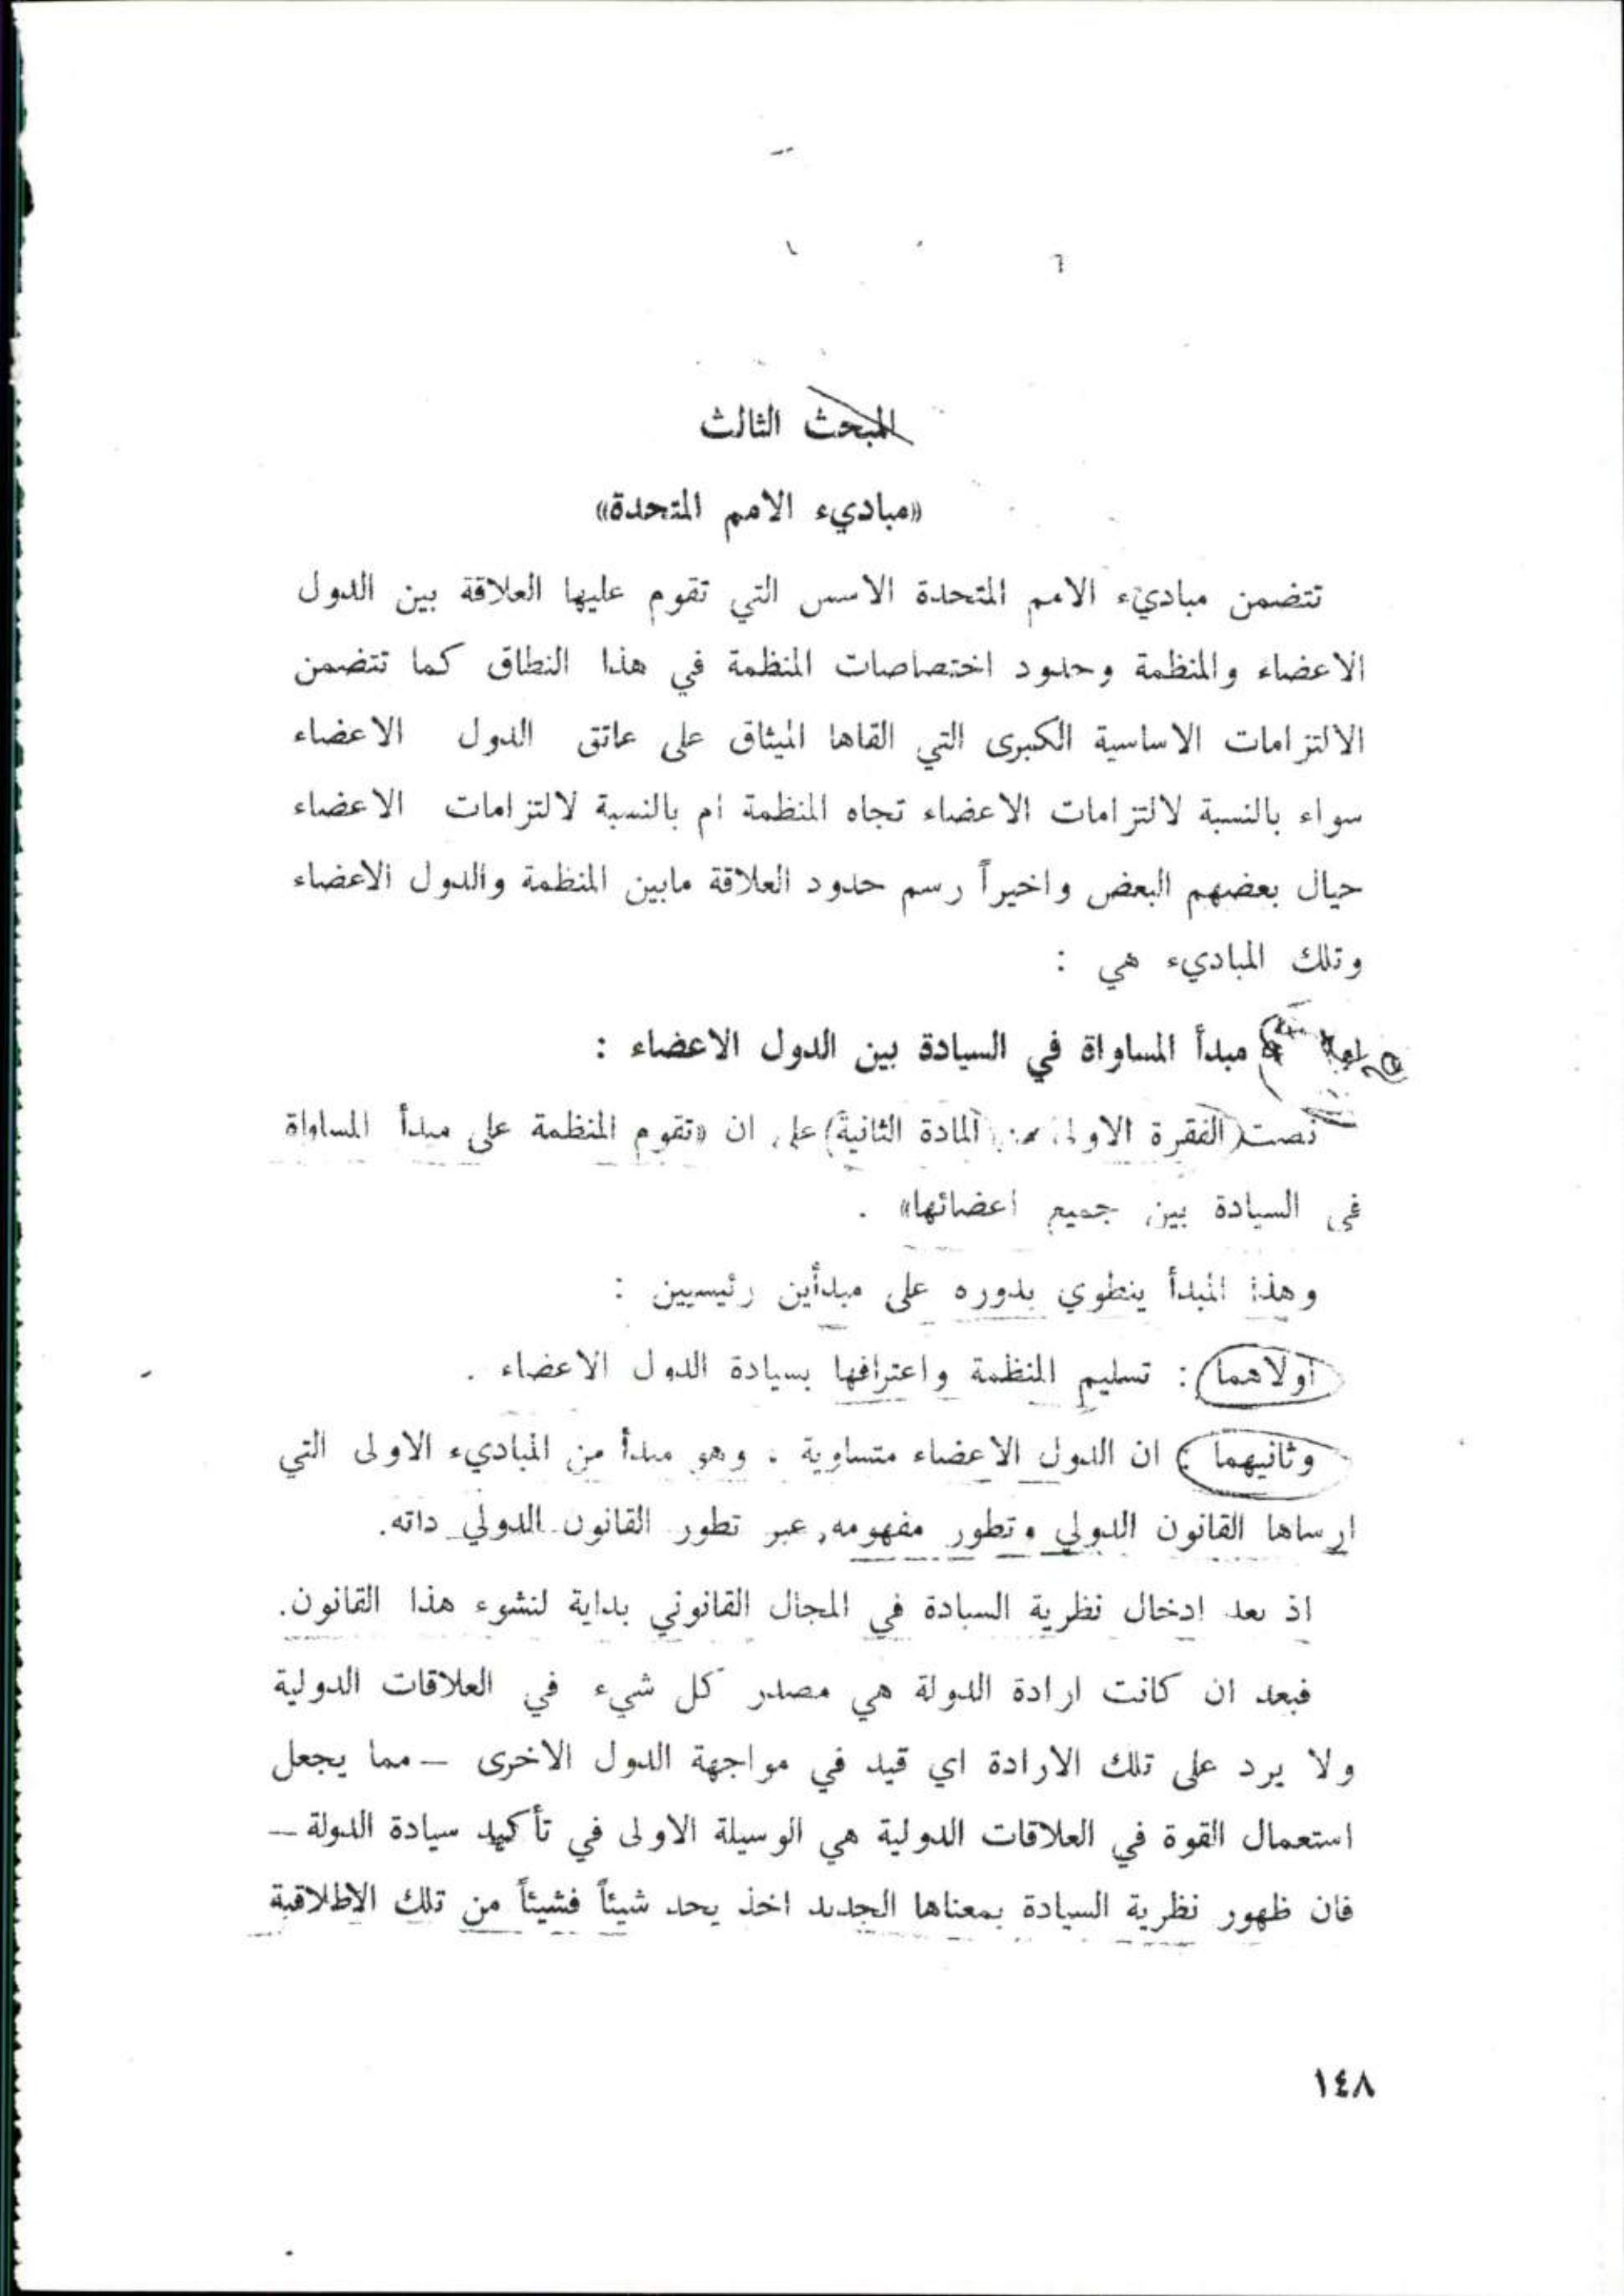 المبحث الثالث
«مباديء الامم المتحدة»
تتضمن مباديء الامم المتحدة الاسس التي تقوم عليها العلاقة بين الدول
الاعضاء والمنظمة وحدود اختصاصات المنظمة في هذا النطاق كما تتضمن
الالتزامات الاساسية الكبرى التي القاها الميثاق على عاتق الدول الاعضاء
سواء بالنسبة لالتزامات الاعضاء تجاه المنظمة ام بالنسبة لالتزامات الاعضاء
حيال بعضهم البعض واخيراً رسم حدود العلاقة مابين المنظمة والدول الاعضاء
وتلك المباديء هي :
مبدأ المساواة في السيادة بين الدول الاعضاء :
نصت (الفقرة الاولى من المادة الثانية) على ان «تقوم المنظمة على مبدأ المساواة
في السيادة بين جميع اعضائها» .
وهذا المبدأ ينطوي بدوره على مبدأين رئيسيين :
أولاهما : تسليم المنظمة واعترافها بسيادة الدول الاعضاء .
وثانيهما : ان الدول الاعضاء متساوية . وهو مبدأ من المباديء الاولى التي
ارساها القانون الدولي وتطور مفهومه, عبر تطور القانون الدولي ذاته.
اذ بعد ادخال نظرية السيادة في المجال القانوني بداية لنشوء هذا القانون.
فبعد ان كانت ارادة الدولة هي مصدر كل شيء في العلاقات الدولية
ولا يرد على تلك الارادة اي قيد في مواجهة الدول الاخرى – مما يجعل
استعمال القوة في العلاقات الدولية هي الوسيلة الاولى في تأكيد سيادة الدولة –
فان ظهور نظرية السيادة بمعناها الجديد اخذ يحد شيئاً فشيئاً من تلك الاطلاقية
١٤٨